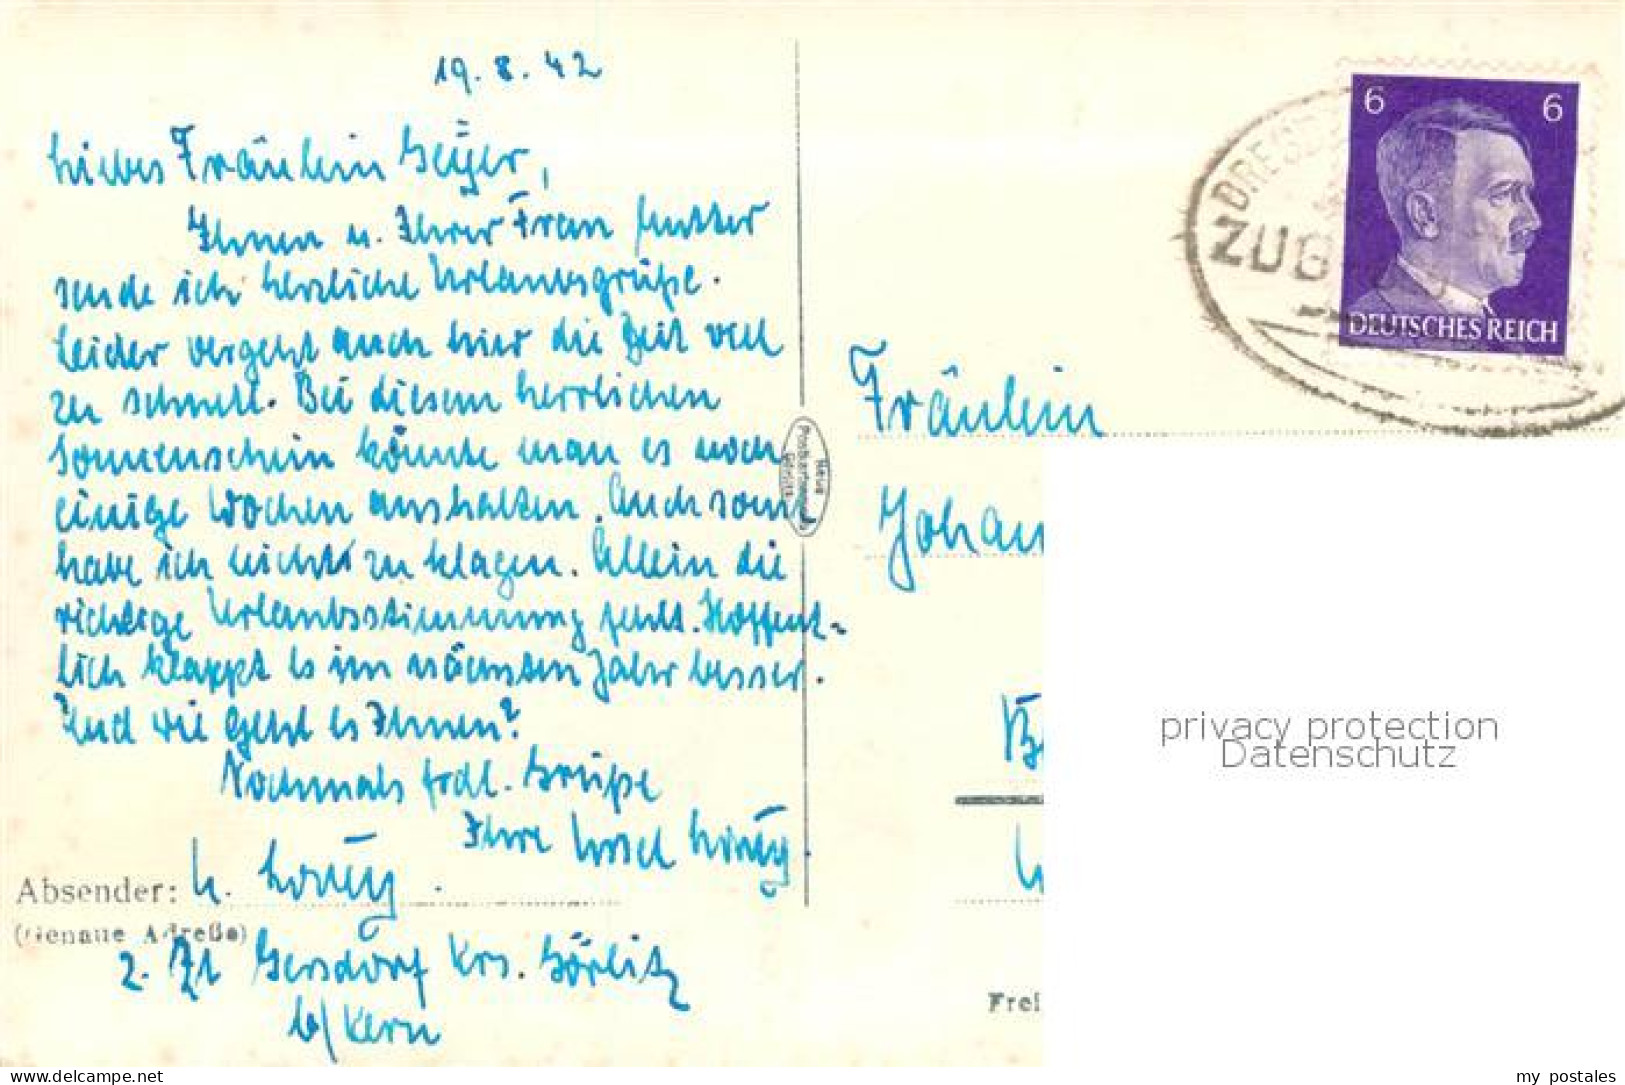 19. 8. 42
Liebes Fräulein Geÿer,
Ihnen u. Ihrer Frau Mutter
sende ich herzliche Urlaubsgrüße.
Leider vergeht auch hier die Zeit viel
zu schnell. Bei diesem herrlichen
Sonnenschein könnte man es noch
einige Wochen aushalten. Auch sonst
habe ich nichts zu klagen. Allein die
richtige Urlaubsstimmung fehlt. Hoffent-
lich klappt es im nächsten Jahr besser.
Und wie geht es Ihnen?
Nochmals frdl. Grüße
Ihre Ursel
Absender: U.
(Genaue Adreße)
z. Zt Gersdorf Krs. Görlitz
b/ Kern
Neue
Photokunst
6 6
DEUTSCHES REICH
DRESD
ZUG
Fräulein
Johan
Frei
privacy protection
Datenschutz
www.delcampe.net
my_postales